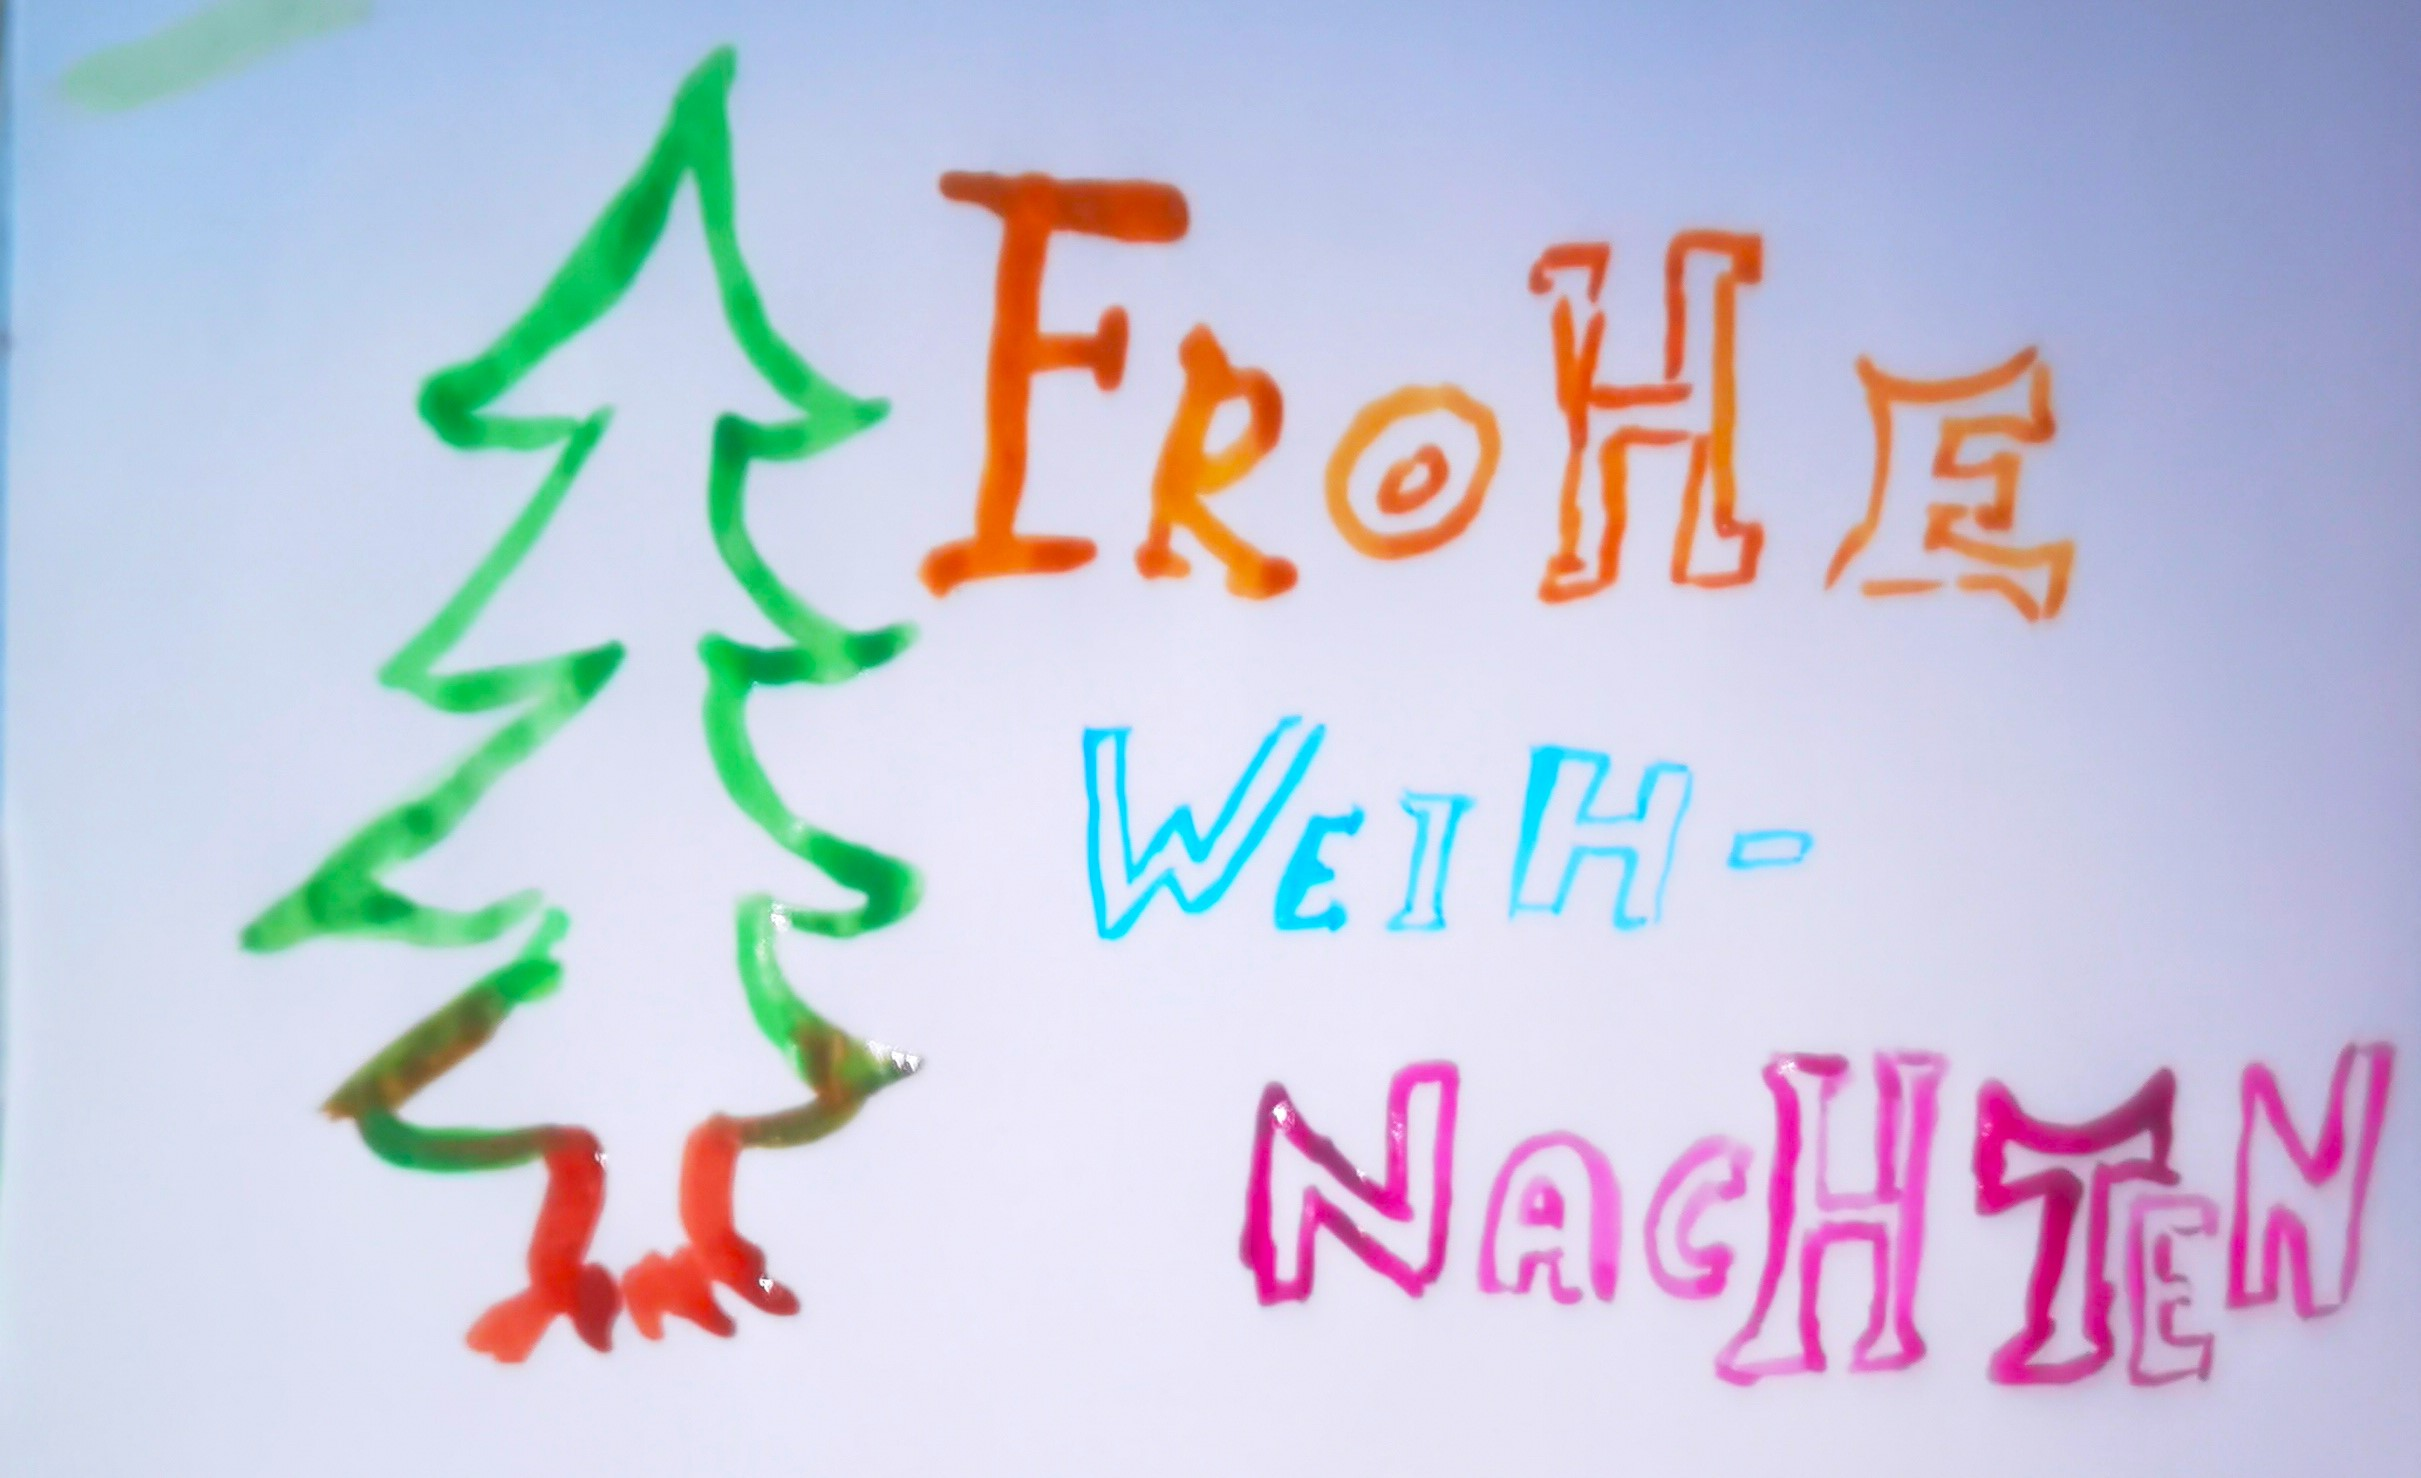 FROHE
WEIH-
NACHTEN